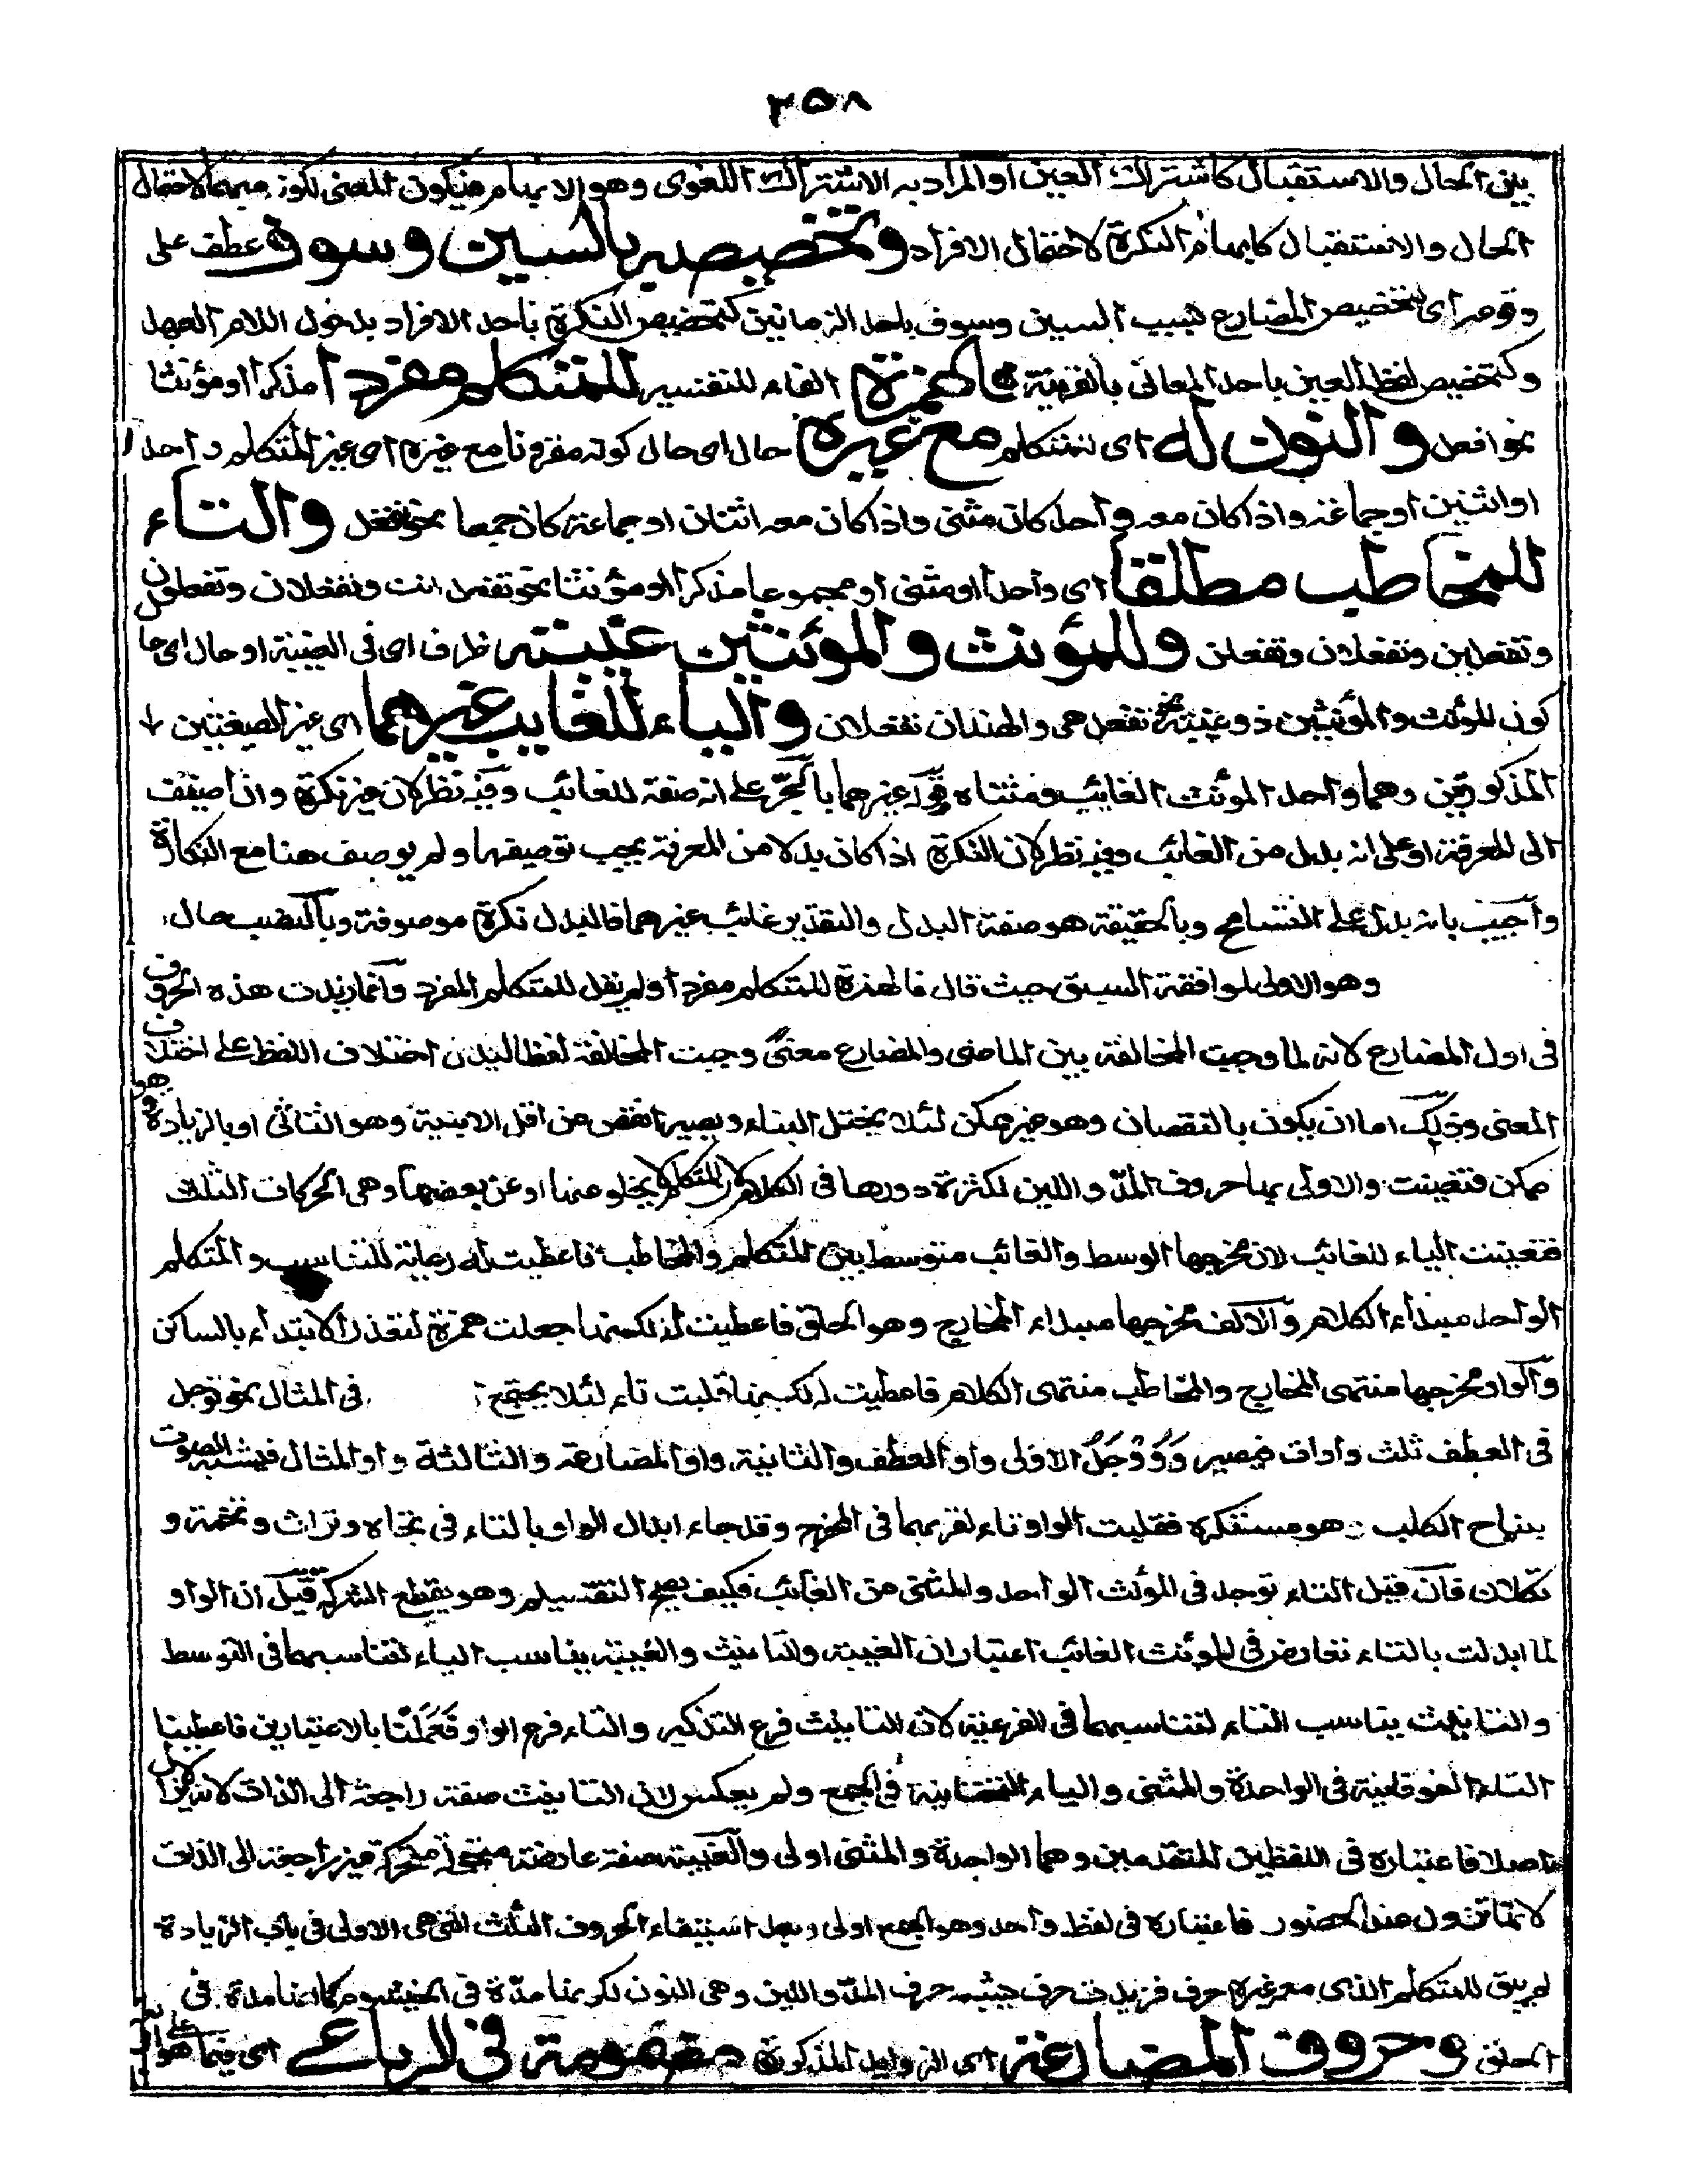 ٢٥٨
بين الحال والاستقبال كاشتراك العين او المراد به الاشتراك اللغوى وهو الابهام فيكون المعنى لكونه مبهما لاحتمال
الحال والاستقبال كابهام النكرة لاحتمال الافراد وتخصيصه بالسين وسوف عطف على
وقوعه اى لتخصيص المضارع بسبب السين وسوف باحد الزمانين كتخصيص النكرة باحد الافراد بدخول اللام العهد
وكتخصيص لفظ العين باحد المعانى بالقرينة فالهمزة الفاء للتفسير للمتكلم مفردا مذكرا او مؤنثا
نحو افعل والنون له اى للمتكلم مع غيره حال اى حال كونه مقرونا مع غيره اى غير المتكلم واحدا
او اثنين او جماعة واذا كان معه واحد كان مثنى واذا كان معه اثنان او جماعة كان جمعا نحو نفعل والتاء
للمخاطب مطلقا اى واحدا او مثنى او مجموعا مذكرا او مؤنثا نحو تفعل انت وتفعلان وتفعلون
وتفعلين وتفعلان وتفعلن وللمؤنث والمؤنثين غيبته ظرف اى فى الغيبة او حال اى حا
كون المؤنث والمؤنثين ذو غيبة نحو تفعل هى والهندان تفعلان والياء للغايب غيرهما اى غير الصيغتين
المذكورتين وهما واحد المؤنث الغايب ومثناه قوله غيرهما بالجر على انه صفة للغائب وفيه نظر لان غير نكرة وان اضيفت
الى المعرفة او على انه بدل من الغائب وفيه نظر لان النكرة اذا كان بدلا من المعرفة يجب توصيفها ولم يوصف هنا مع النكارة
واجيب بانه بدل على التسامح وبالحقيقة هو صفة البدل والتقدير غائب غيرهما فالبدل نكرة موصوفة وبالنصب حال
وهو الاولى لموافقة السبق حيث قال فالهمزة للمتكلم مفردا ولم يقل للمتكلم المفرد وانما زيدت هذه الحروف
فى اول المضارع لانه لما وجبت المخالفة بين الماضى والمضارع معنىً وجبت المخالفة لفظا ليدل اختلاف اللفظ على اختلاف
المعنى وذلك اما ان يكون بالنقصان وهو غير ممكن لئلا يختل البناء ويصير انقص من اقل الابنية وهو الثلاثى او بالزيادة وهو
ممكن فتعينت والاولى بها حروف المدّ واللين لكثرة دورها فى الكلام لان المتكلم لا يخلو عنها او عن بعضها وهى الحركات الثلث
فتعينت الياء للغائب لان مخرجها الوسط والغائب متوسط بين المتكلم والمخاطب فاعطيت له رعاية للتناسب والمتكلم
الواحد مبدأ الكلام والالف مخرجها مبداء المخارج وهو الحلق فاعطيت له لكنها جعلت همزة لتعذر الابتداء بالساكن
والواو مخرجها منتهى المخارج والمخاطب منتهى الكلام فاعطيت له لكنها قلبت تاء لئلا يجتمع فى المثال نحو توجل
فى العطف ثلث واوات فيصير وَوَوْجَلُ الاولى واو العطف والثانية واو المضارعة والثالثة واو المثال فيشبه الصوت
بنباح الكلب وهو مستنكره فقلبت الواو تاء لقربهما فى المخرج وقد جاء ابدال الواو بالتاء فى تجاه وتراث وتخمة و
تكلان فان قيل التاء توجد فى المؤنث الواحد والمثنى من الغائب فكيف يصح التقسيم وهو يقطع الشركة قيل ان الواو
لما ابدلت بالتاء تعارض فى المؤنث الغائب اعتباران الغيبة والتانيث والغيبة يناسب الياء لتناسبهما فى التوسط
والتانيث يناسب التاء لتناسبهما فى الفرعية لان التانيث فرع التذكير والتاء فرع الواو فعملنا بالاعتبارين فاعطينا
التاء الفوقانية فى الواحدة والمثنى والياء التحتانية فى الجمع ولم يعكس لان التانيث صفة راجعة الى الذات لانه لا يزال
اصلا فاعتباره فى اللفظين المتقدمين وهما الواحدة والمثنى اولى والغيبة صفة عارضة غير راجعة الى الذات
لانها تزول عند الحضور فاعتباره فى لفظ واحد وهو الجمع اولى وبعد استيفاء الحروف الثلث التى هى الاولى فى باب الزيادة
لم يبق للمتكلم الذى مع غيره حرف فزيدت حرف يشبه حرف المدّ واللين وهى النون لكونها مدّة فى الخيشوم كما انها مدة فى
الحلق وحروف المضارعة اى الزوايد المذكورة مضمومة فى الرباعى اى فيما هو على